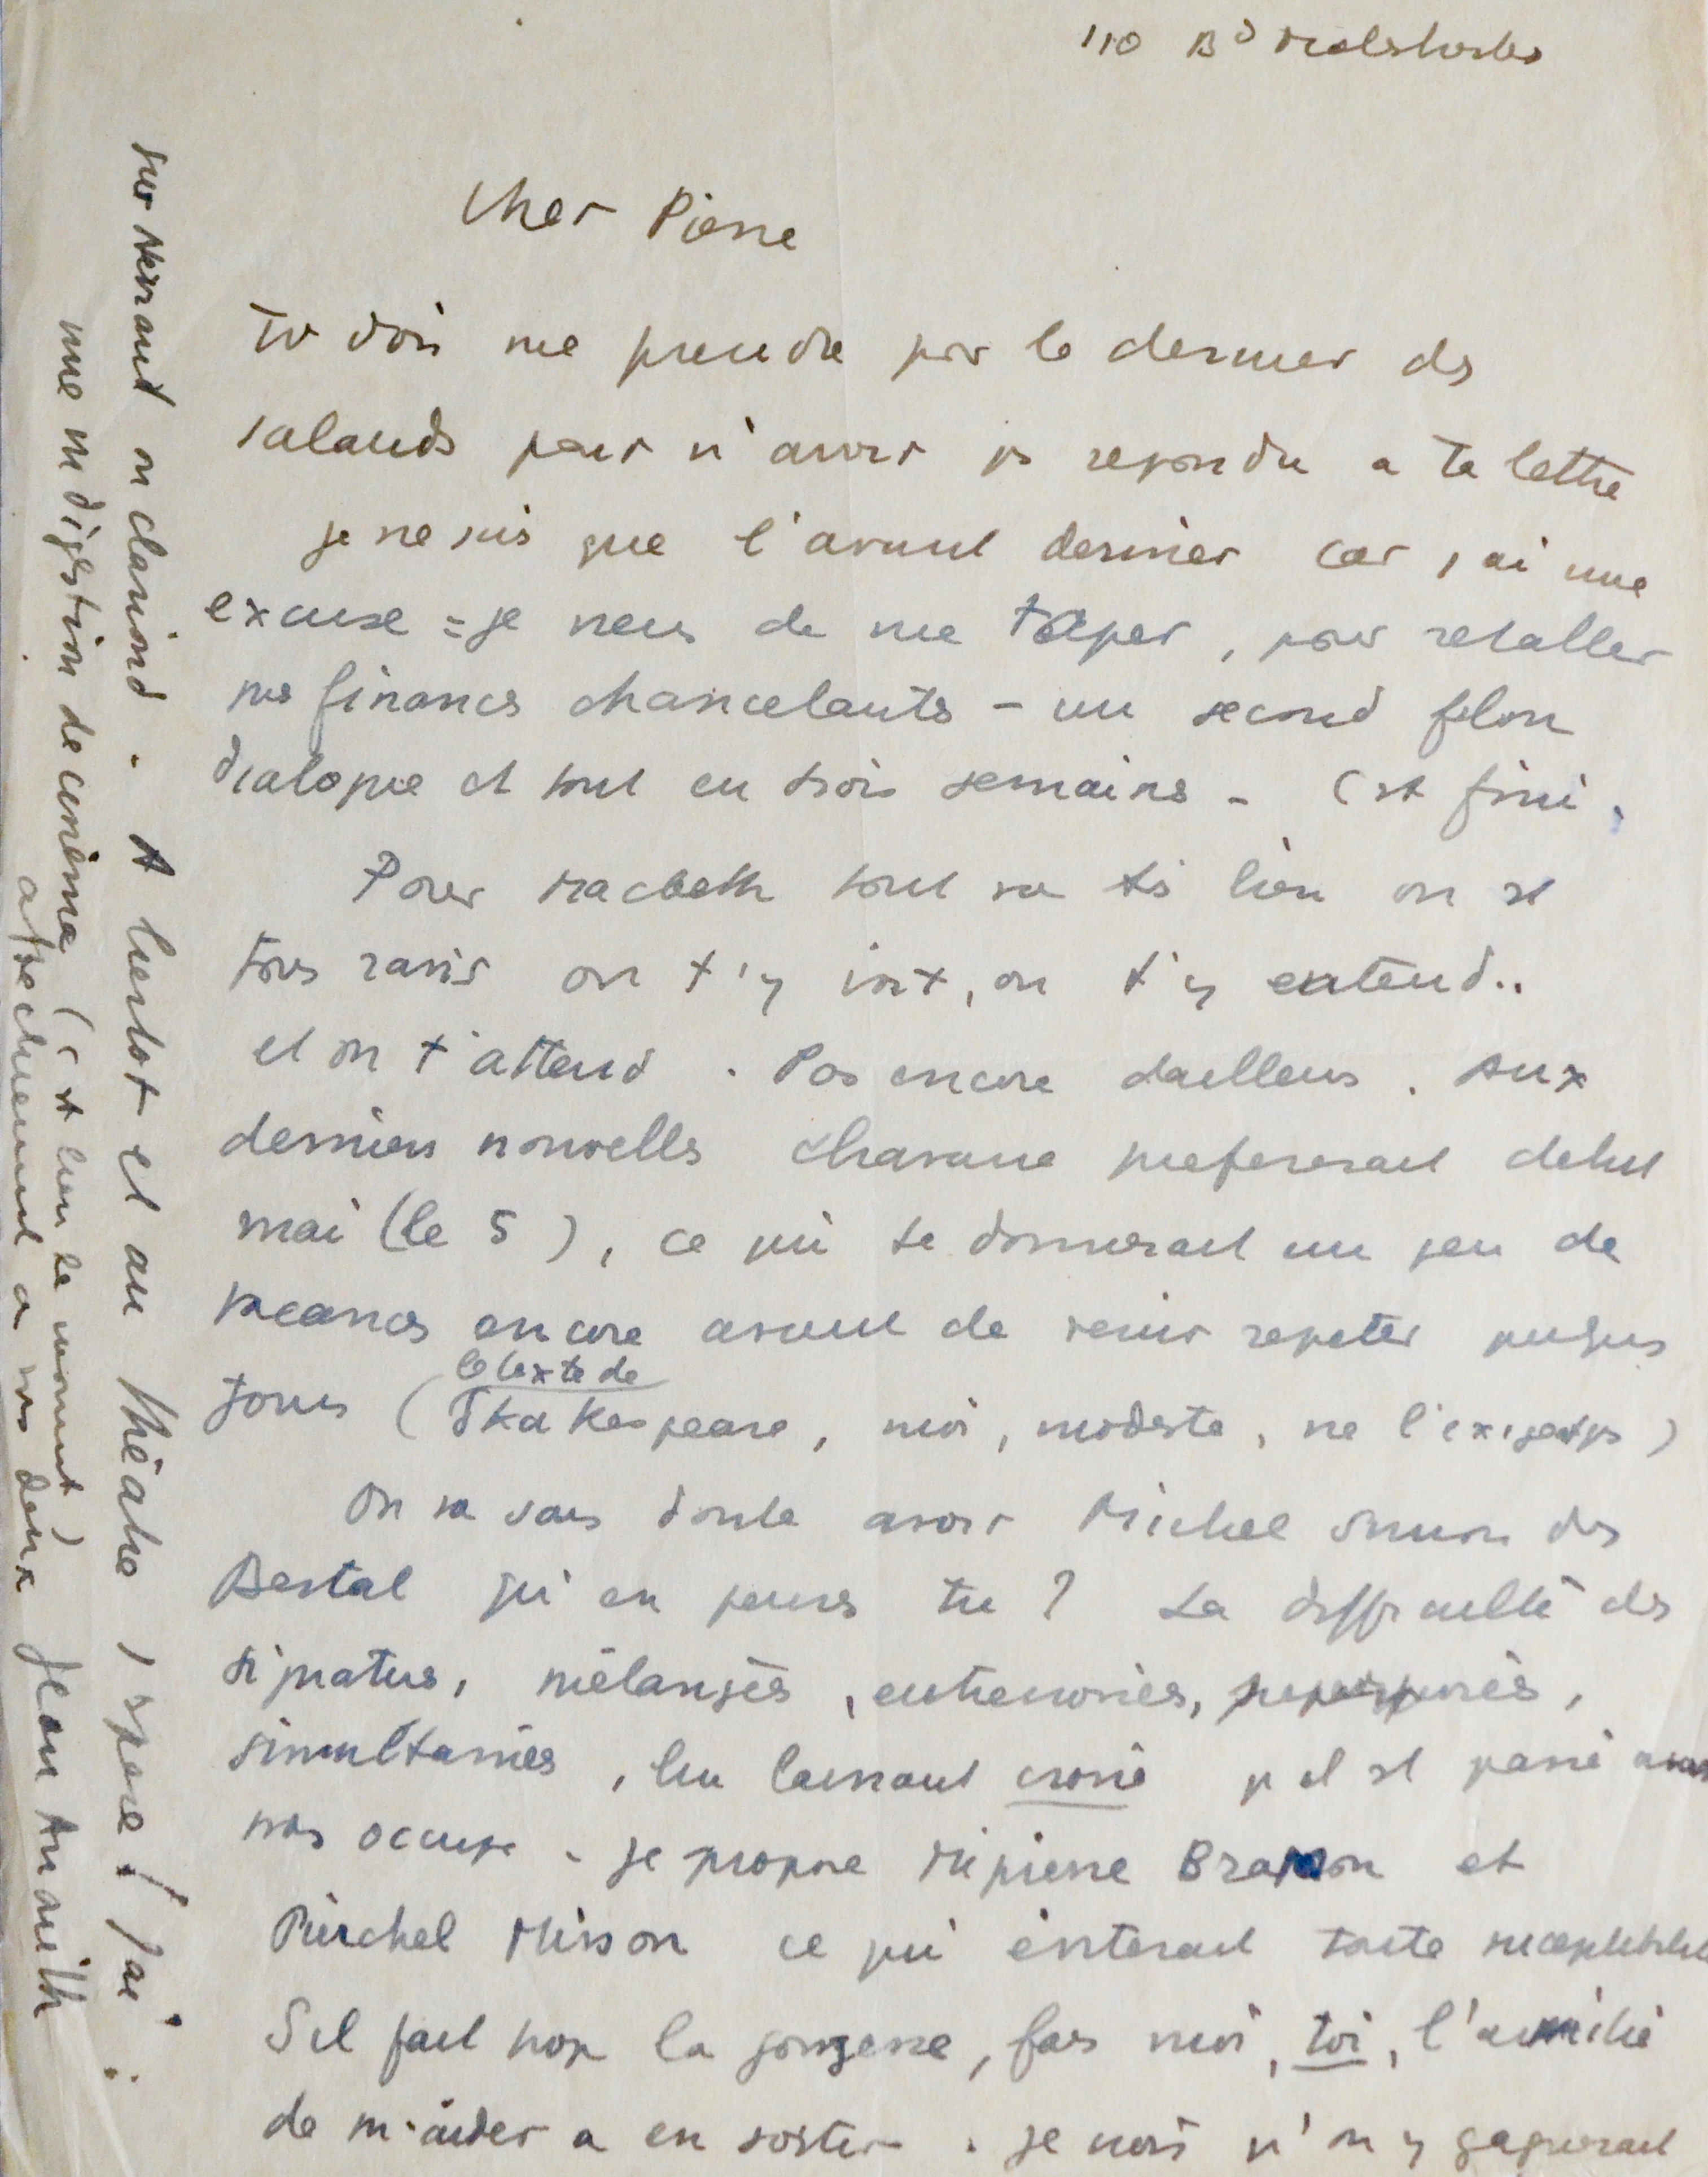 110 Bd Malesherbes
Cher Pierre
Tu dois me prendre pour le dernier des
salauds pour n'avoir pas repondu a ta lettre
je ne suis que l'avant dernier car j'ai une
excuse = je viens de me taper, pour retaller
mes finances chancelants - un second film
dialogue et tout en trois semaines - C'est fini,
Pour Macbeth tout va très bien on est
tous ravis on t'y voit, on t'y entend..
et on t'attend . Pas encore dailleurs . Aux
dernieres nouvelles Chavanne prefererait debut
mai (le 5), ce qui te donnerait un peu de
vacances encore avant de venir repeter quelques
jours (le texte de Shakespeare, moi, modeste, ne l'exigeant pas)
On va sans doute avoir Michel Simon des
Bertal qu'en penses tu ? La difficulté des
signatures, mélangés, entrecroisées,
simultanées, lui laissant croire qu'il est passé avant
nous occupe - je propose Mipierre et
Pierchel Misson ce qui éviterait toute susceptibilité
S'il fait trop la gonzesse, fais moi, toi, l'amitié
de m'aider a en sortir . je crois qu'on y gagnerait
sur servant on clarions - A bientot et au théatre j'espere ! J'ai
une indigestion de cinéma (c'est bien le moment)
affectueusement a vos deux Jean Anouilh